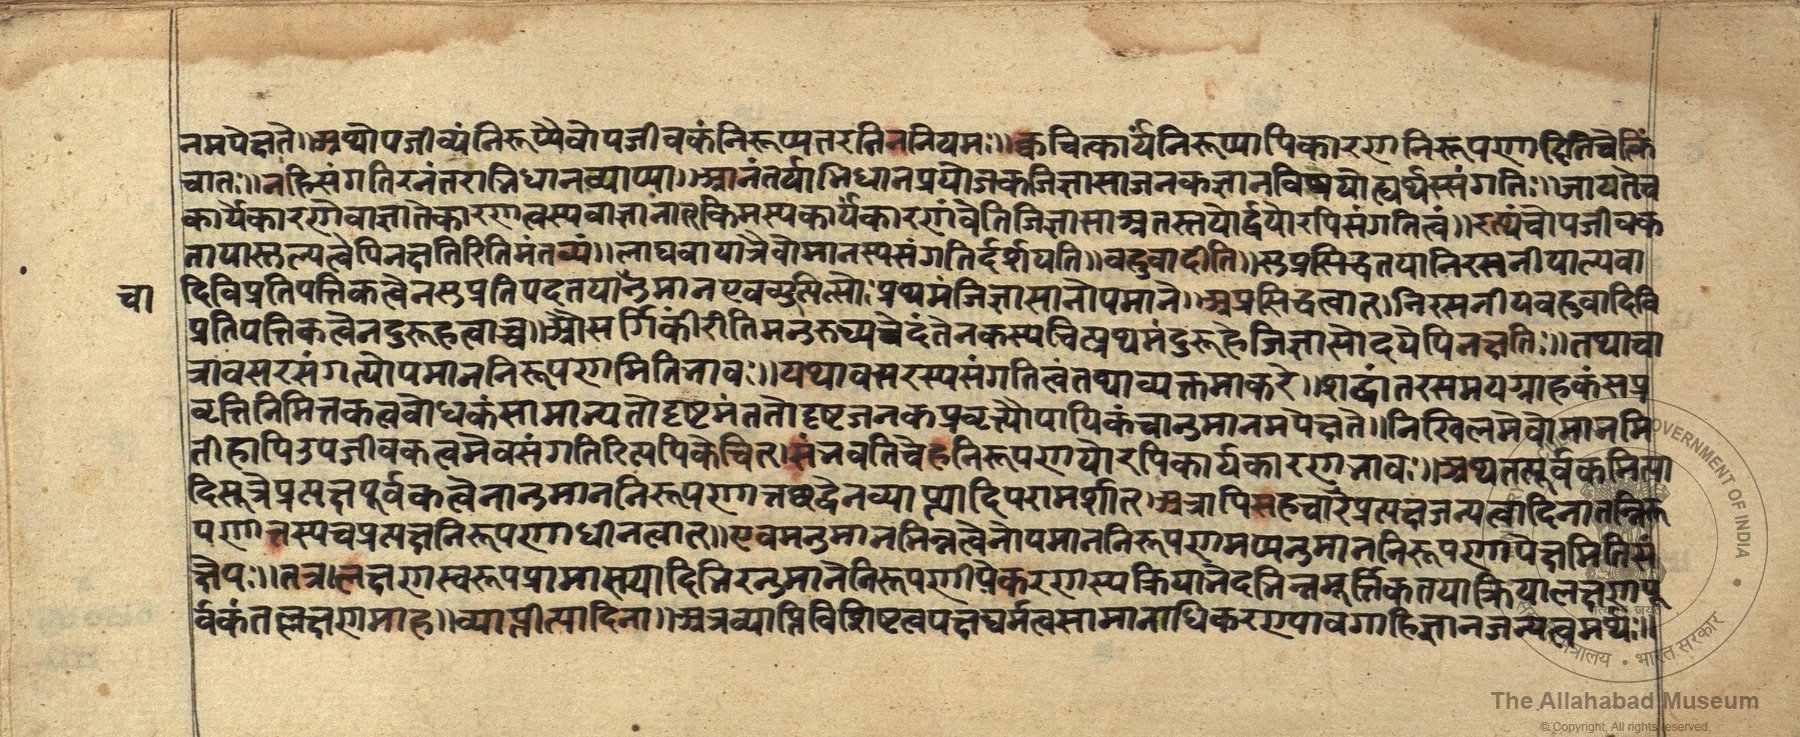 नमपेक्षते॥अथोपजीव्यंनिरूप्यैवोपजीवकंनिरूप्यतरतिननियमः॥क्वचित्कार्यंनिरूप्यापिकारणनिरूपणादितिचेन्न
चातः॥नहिसंगतिरनंतराभिधानव्याप्या॥आनंतर्याभिधानप्रयोजकजिज्ञासाजनकज्ञानविषयोह्यर्थस्संगतिः॥जायतेच
कार्येकारणेवाज्ञातेकारणत्वस्यवाज्ञानात्किमस्यकार्यंकारणंवेतिजिज्ञासाअतस्तयोर्द्वयोरपिसंगतित्वं॥इत्थंचोपजीवक
तायास्तुल्यत्वेपिनक्षतिरितिमंतव्यं॥लाघवायात्रैवोमानस्यसंगतिर्दर्शयति॥बहुवादीति॥सुप्रसिद्धतयानिरसनीयाल्पवा
दिविप्रतिपत्तिकत्वेनसुप्रतिपदतयानुमानएवव्युत्पित्सोःप्रथमंजिज्ञासानोपमाने॥अप्रसिद्धत्वात्।निरसनीयबहुवादिवि
चा
प्रतिपत्तिकत्वेनदुरूहत्वाच्च॥औत्सर्गिकींरीतिमनुरुध्यचेदंतेनकस्यचित्प्रथमंदुरूहेजिज्ञासोदयेपिनक्षतिः॥तथाचा
त्रावसरसंगत्योपमाननिरूपणमितिभावः॥यथावसरस्यसंगतित्वंतथाव्यक्तमाकरे॥शब्दांतरसमयग्राहकंसप्र
वृत्तिनिमित्तकत्वबोधकंसामान्यतोदृष्टमंततोदृष्टजनकप्रवृत्त्योपायिकंचानुमानमपेक्षते॥निखिलमेवोमानमि
तीहापिउपजीवकत्वमेवसंगतिरित्यपिकेचित्।संभवतिचेहनिरूपणयोरपिकार्यकारणभावः॥अथतत्पूर्वकमित्या
दिसूत्रेप्रत्यक्षपूर्वकत्वेनानुमाननिरूपणात्तच्छब्देनव्याप्त्यादिपरामर्शात्।अत्रापिसहचारप्रत्यक्षजन्यत्वादिनातन्निरू
पणात्तस्यचप्रत्यक्षनिरूपणाधीनत्वात्॥एवमनुमानभिन्नत्वेनोपमाननिरूपणमप्यनुमाननिरूपणापेक्षमितिसं
क्षेपः॥तत्र।लक्षणस्वरूपप्रामाण्यादिभिरनुमानेनिरूपणीयेकरणस्यक्रिययानैदभिन्नमूर्त्तिकतयाक्रियालक्षणपू
र्वकंतल्लक्षणमाह॥व्याप्तीत्यादिना॥अत्रव्याप्तिविशिष्टत्वपक्षधर्मत्वसामानाधिकरण्यावगाहिज्ञानजन्यत्वमर्थः॥
The Allahabad Museum
© Copyright, All rights reserved.